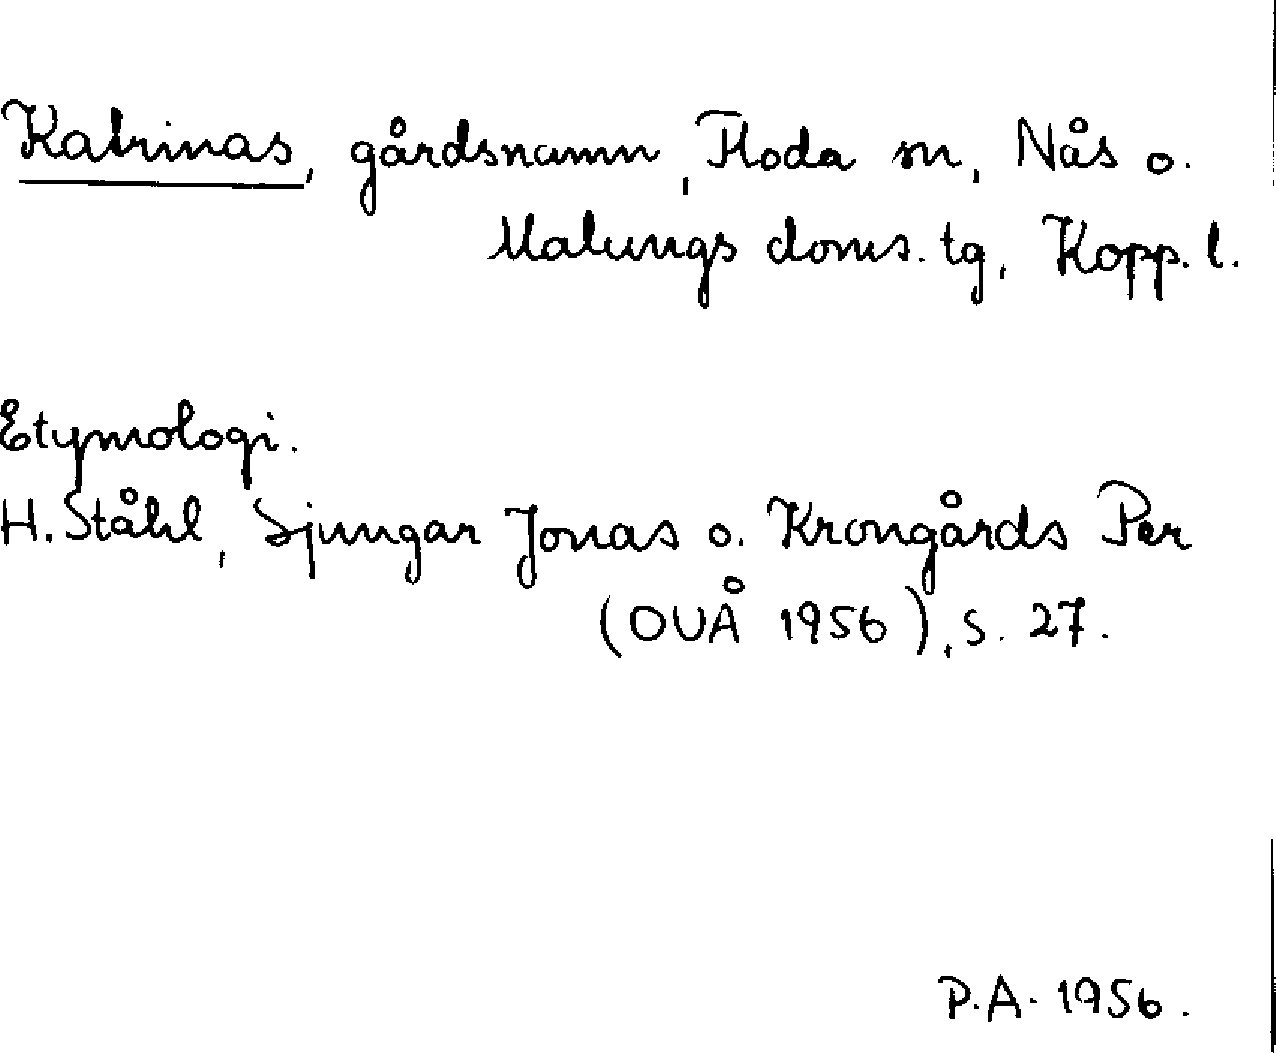 Katrinas, gårdsnamn, Floda sn, Nås o.
Malungs doms. tg, Kopp. l.
Etymologi.
H. Ståhl, Sjungar Jonas o. Krongårds Per
(OUÅ 1956), s. 27.
P.A. 1956.